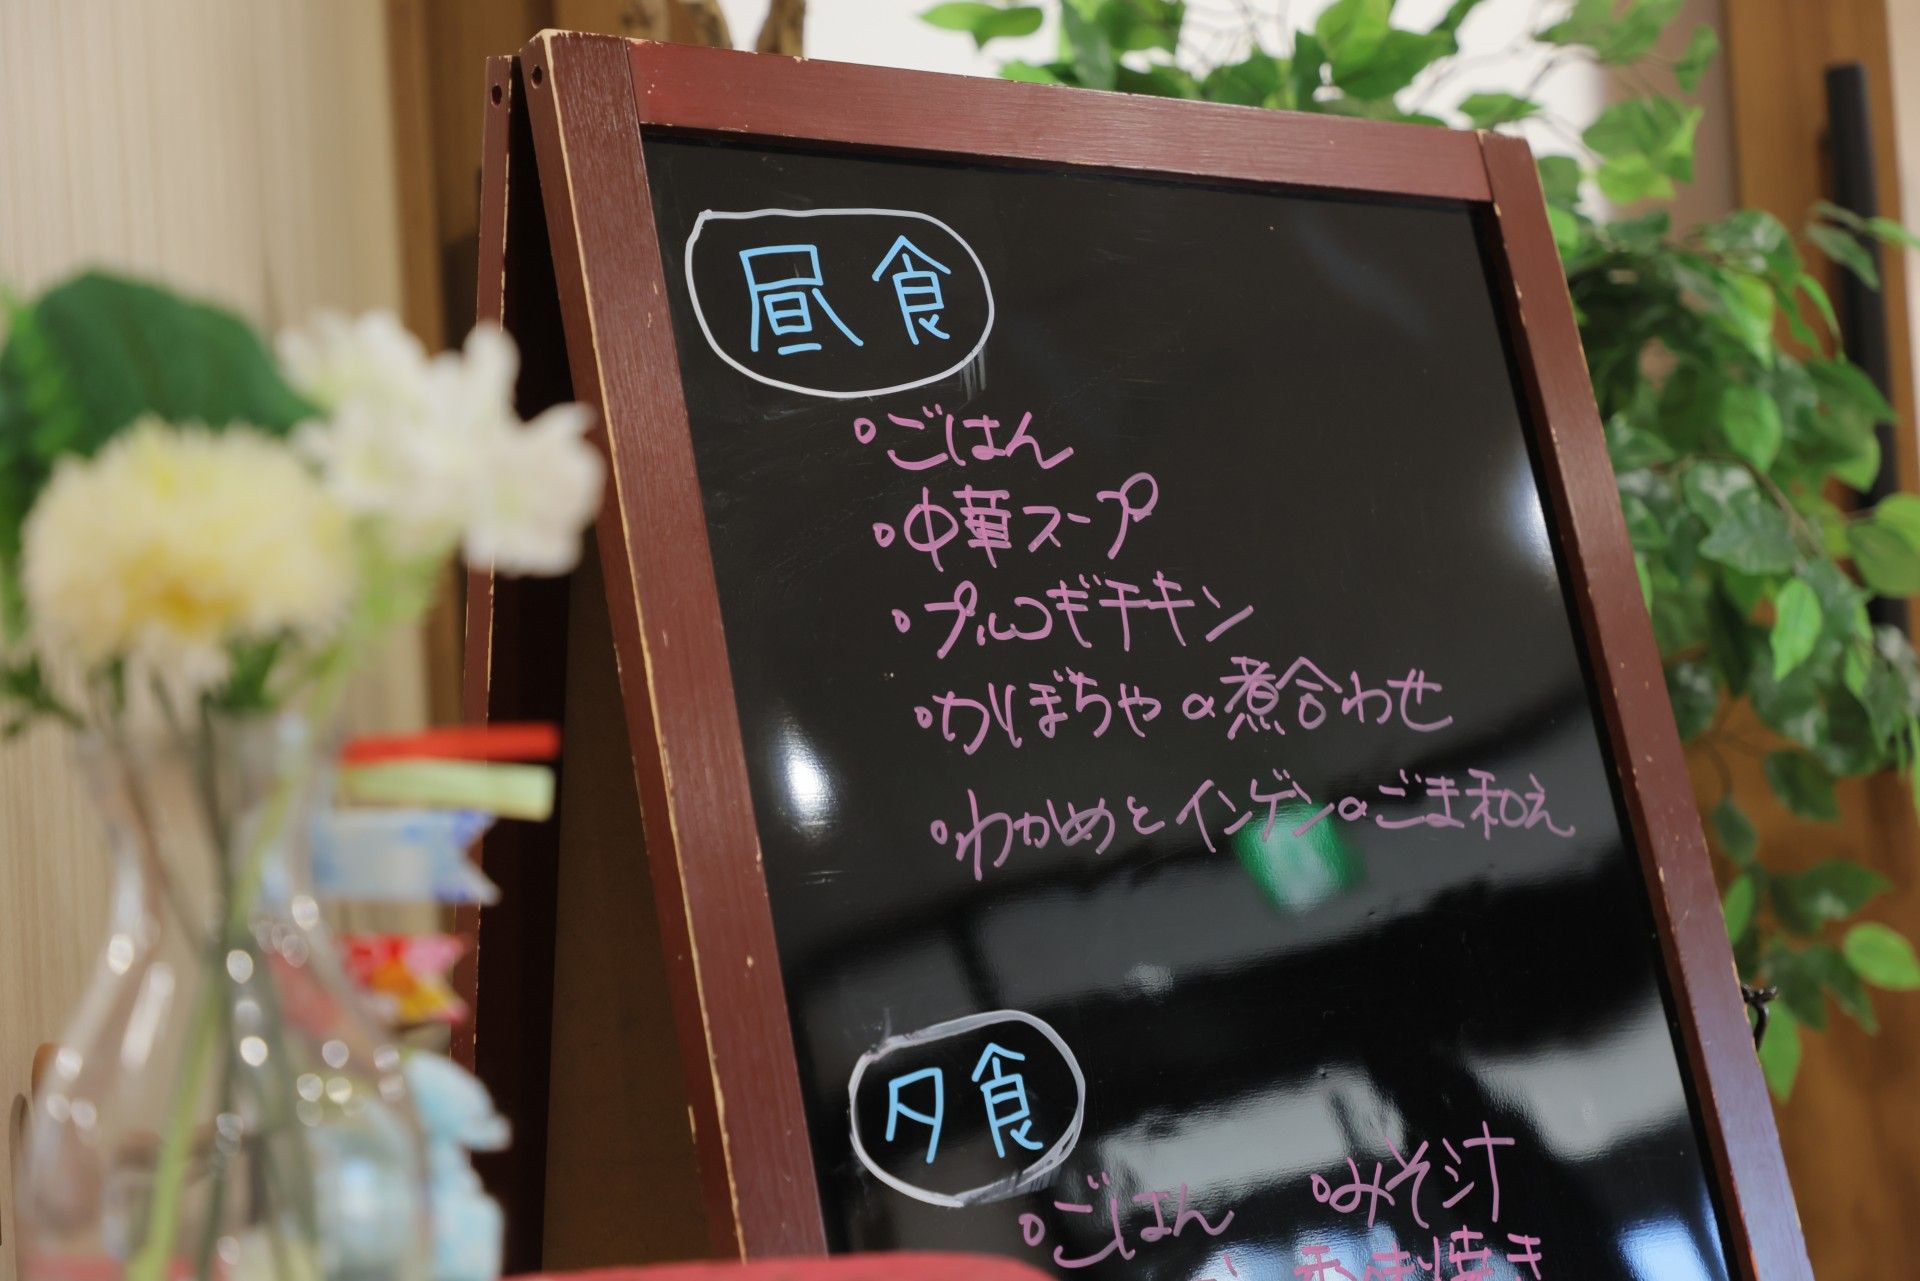 昼食
・ごはん
・中華スープ
・プルコギチキン
・かぼちゃの煮合わせ
・わかめとインゲンのごま和え
夕食
・ごはん ・みそ汁
香味焼き